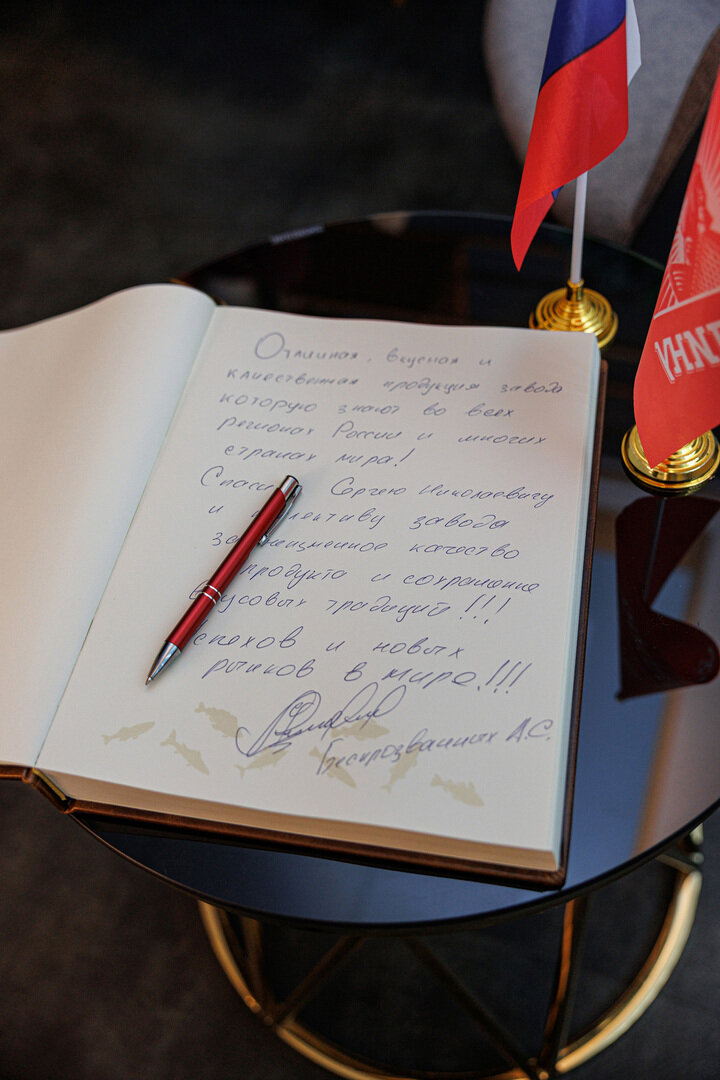 Отличная, вкусная и
качественная продукция завода
которую знают во всех
регионах России и многих
странах мира!
Сергею Николаевичу
и завода
качество
продукта и сохранение
традиций!!!
и новых
рынков в мире!!!
Беспрозванных А.С.